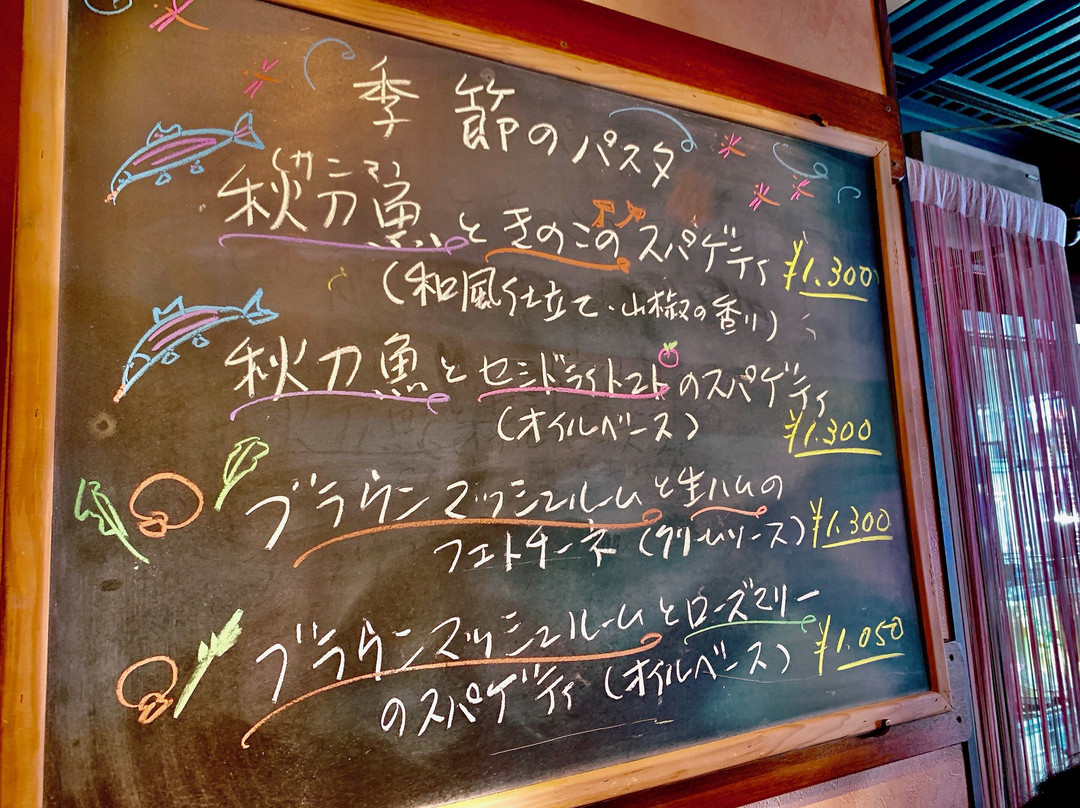 季節のパスタ
(サンマ)
秋刀魚ときのこのスパゲティ ¥1.300
(和風仕立て、山椒の香り)
秋刀魚とセミドライトマトのスパゲティ
(オイルベース) ¥1.300
ブラウンマッシュルームと生ハムの
フェトチーネ(クリームソース) ¥1.300
ブラウンマッシュルームとローズマリー
のスパゲティ(オイルベース) ¥1.050